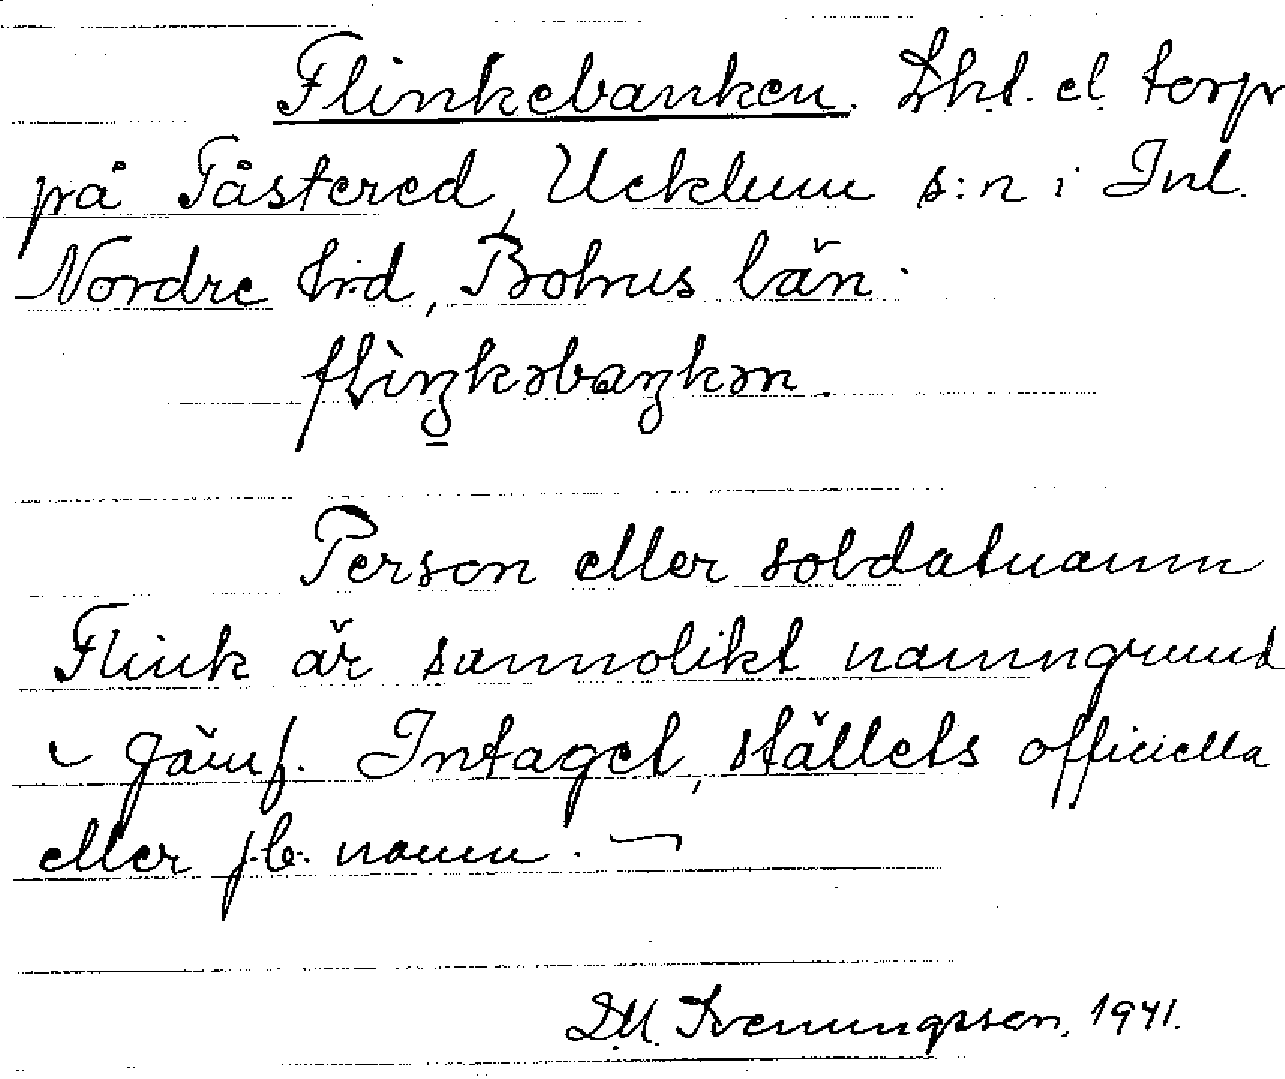 Flinkebanken. Lht. el. torp
på Tåstered, Ucklum s:n i Inl.
Nordre hrd, Bohus län.
flìŋkəbaŋkən.
Person eller soldatnamn
Flink är sannolikt namngrund
Jämf. Intaget, ställets officiella
eller jb. namn. ¬
D.M. Svenungsson, 1941.